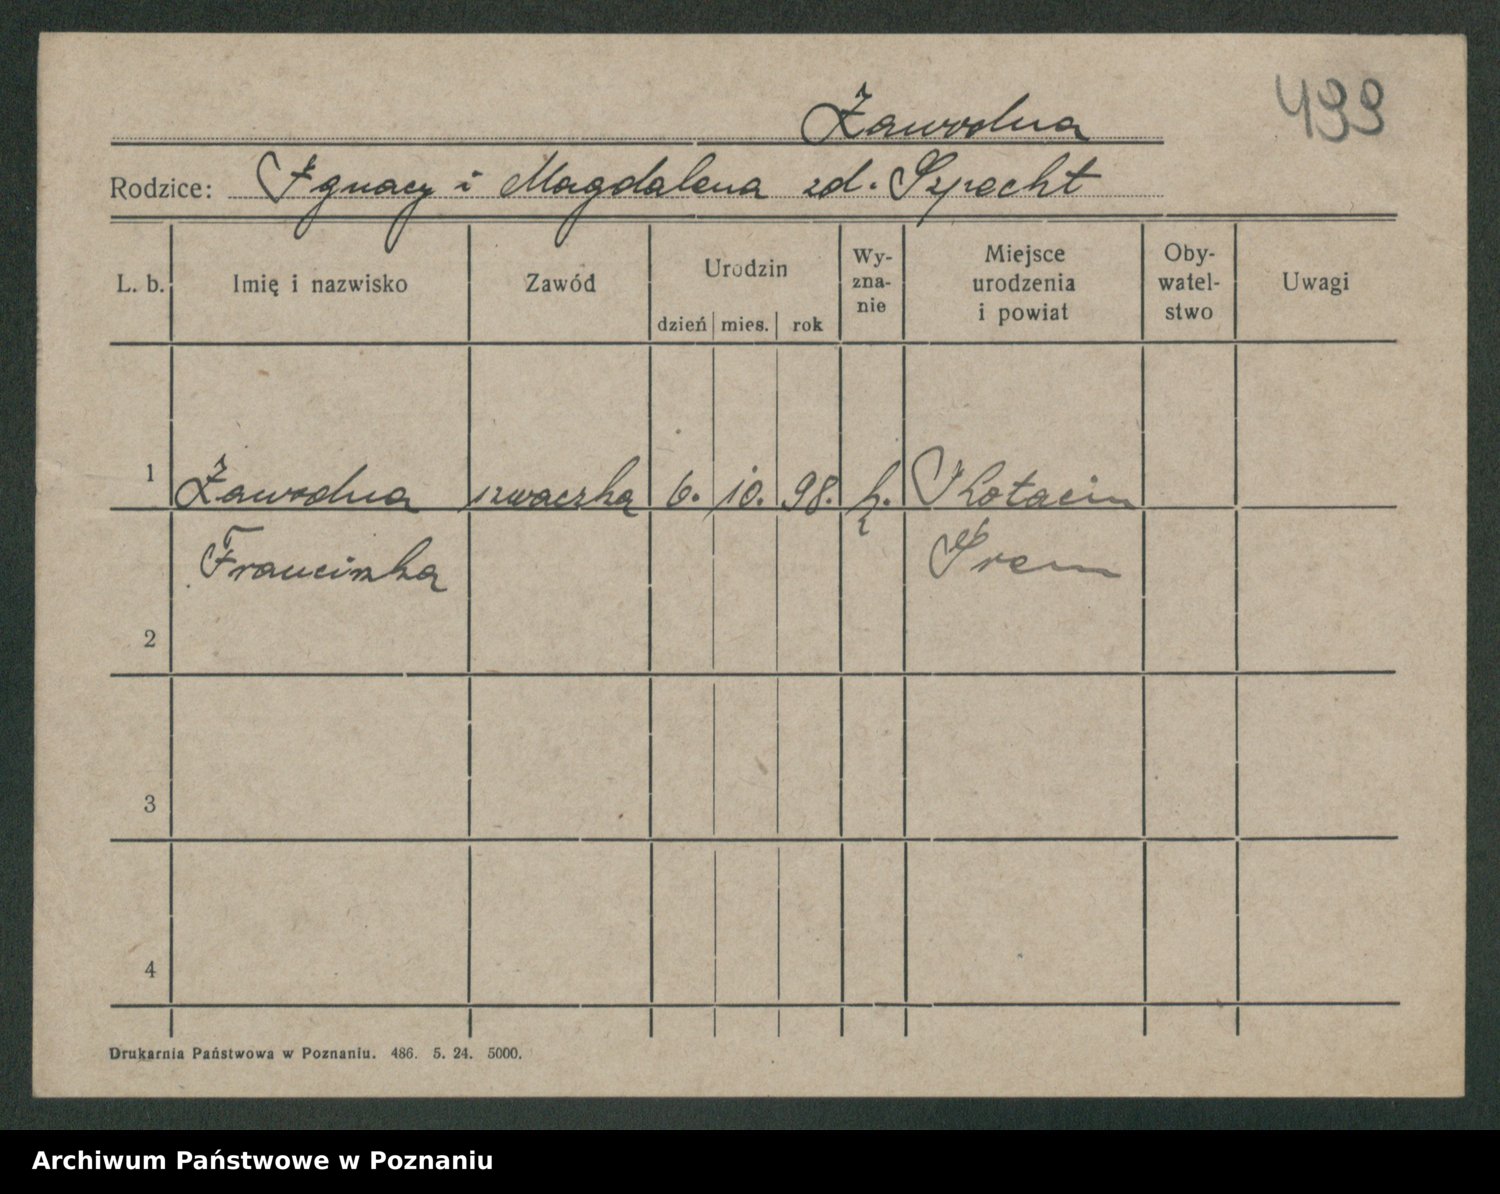 499
Zawodna
Rodzice: Ignacy i Magdalena zd. Szpecht
L. b. Imię i nazwisko Zawód Urodzin dzień mies. rok Wy-zna-nie Miejsce urodzenia i powiat Oby-watel-stwo Uwagi
1 Zawodna szwaczka 6. 10. 98. k.
Franciszka Śrem
2
3
4
Drukarnia Państwowa w Poznaniu. 486. 5. 24. 5000.
Archiwum Państwowe w Poznaniu